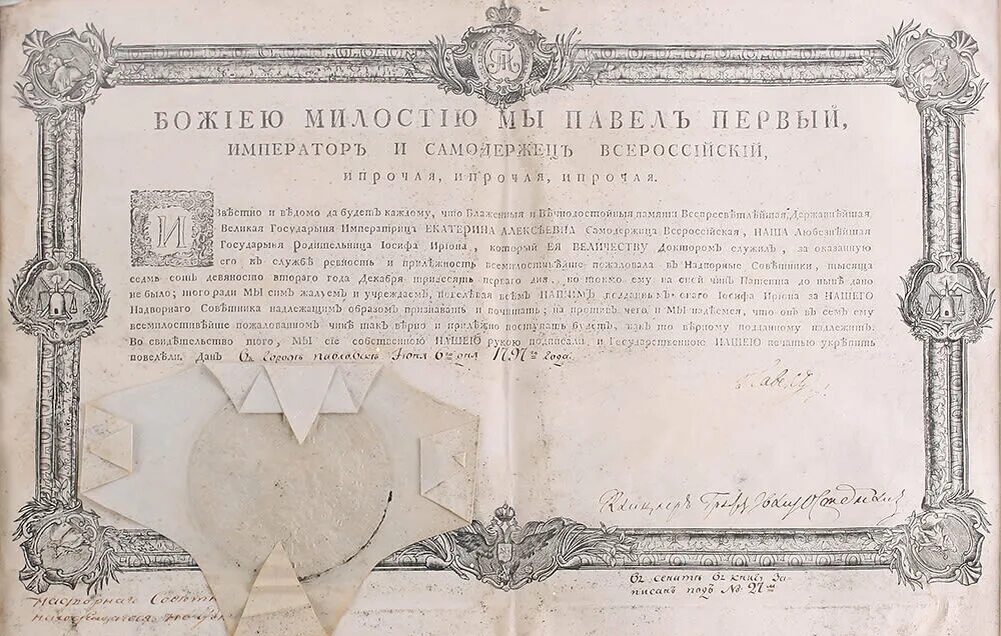 БОЖІЕЮ МИЛОСТІЮ МЫ ПАВЕЛЪ ПЕРВЫЙ,
ИМПЕРАТОРЪ И САМОДЕРЖЕЦЪ ВСЕРОССІЙСКІЙ,
И ПРОЧАЯ, И ПРОЧАЯ, И ПРОЧАЯ.
Извѣстно и вѣдомо да будетъ каждому, что Блаженныя и Вѣчнодостойныя памяти Всепресвѣтлѣйшая Державнѣйшая
Великая Государыня Императрица ЕКАТЕРИНА АЛЕКСѢЕВНА Самодержица Всероссійская, НАША Любезнѣйшая
Государыня Родительница Іосифа Иріона, который ЕЯ ВЕЛИЧЕСТВУ Докторомъ служилъ, за оказанную
его къ службѣ ревность и прилѣжность всемилостивѣйше пожаловала въ Надворные Совѣтники, тысяща
седмь сотъ девяносто втораго года Декабря тридесять перваго дня, но токмо ему на сей чинъ Патента до нынѣ дано
не было; того ради МЫ симъ жалуемъ и учреждаемъ, повелѣвая всѣмъ НАШИМЪ подданнымъ онаго Іосифа Иріона за НАШЕГО
Надворнаго Совѣтника надлежащимъ образомъ признавать и почитать; на противъ чего и МЫ надѣемся, что онъ въ семъ ему
всемилостивѣйше пожалованномъ чинѣ такъ вѣрно и прилѣжно поступать будетъ, какъ то вѣрному подданному надлежитъ.
Во свидѣтельство того, МЫ сіе собственною НАШЕЮ рукою подписали, и Государственною НАШЕЮ печатью укрѣпить
повелѣли. Данъ въ городѣ Павловскѣ Іюня 6го дня 1797го года.
Павелъ
Канцлеръ Графъ
въ сенатѣ въ книгѣ за-
писанъ подъ № 27мъ